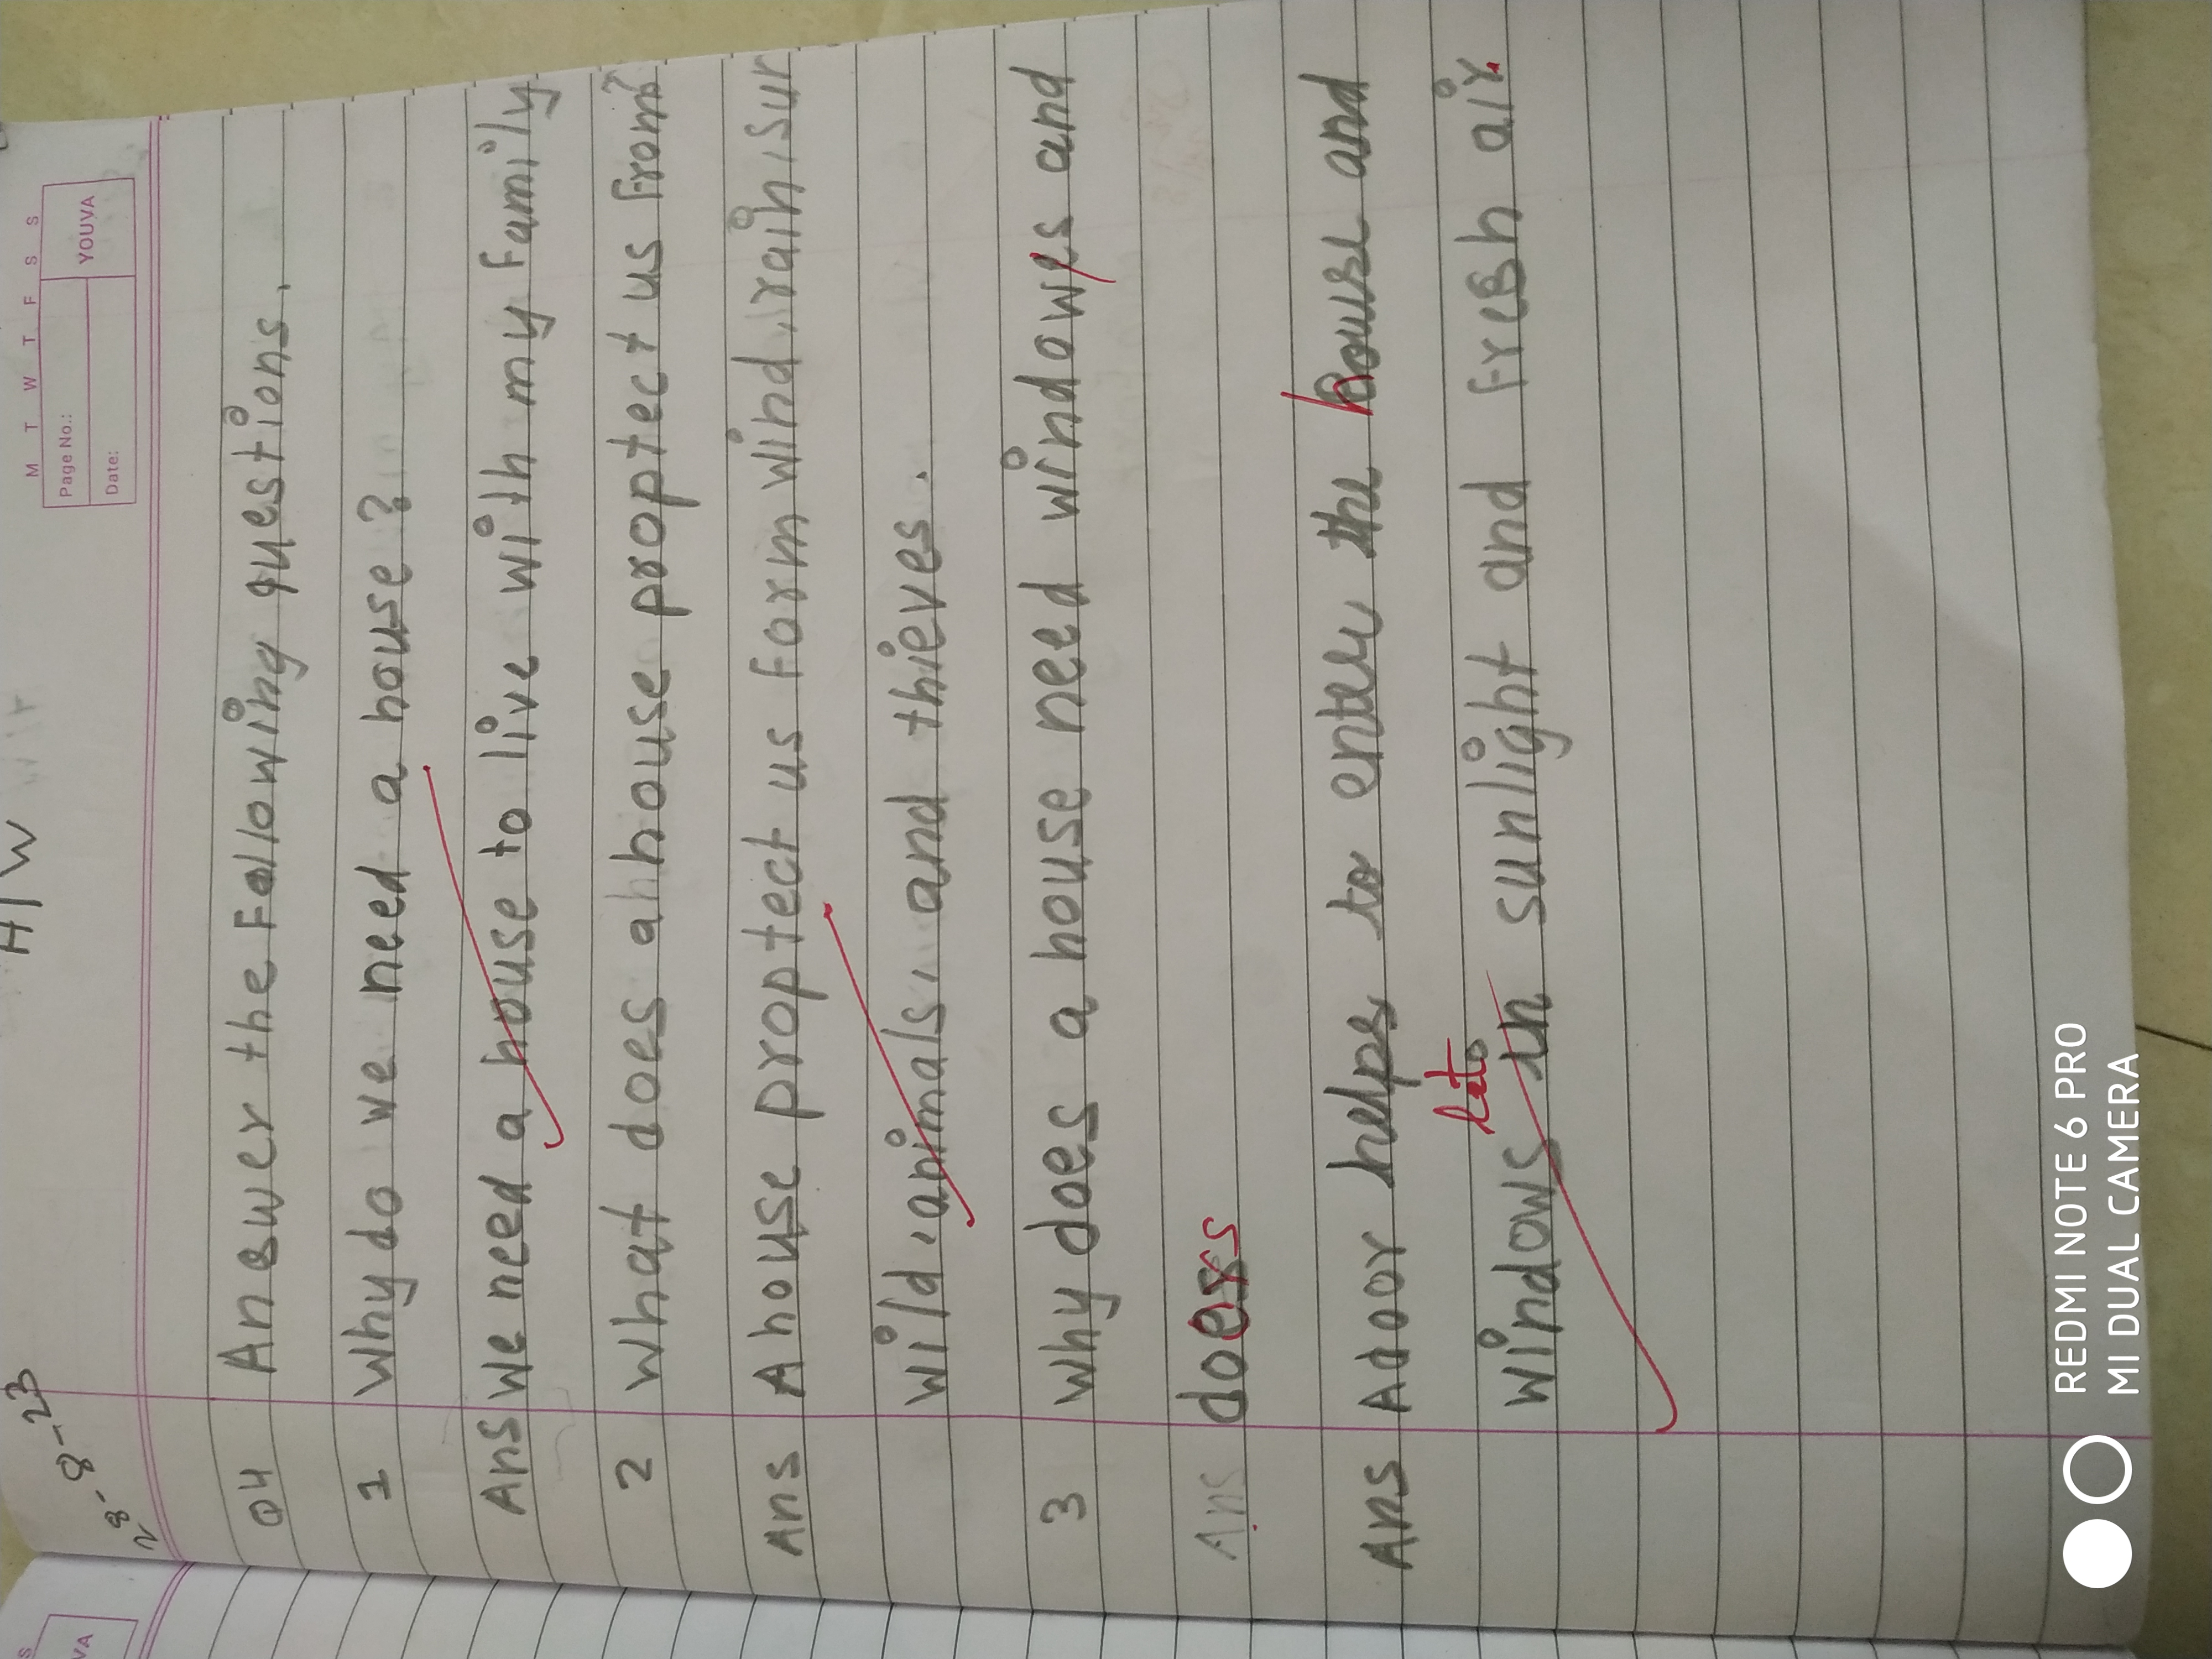 H/W
28-8-23
M T W T F S S
Page No.:
Date:
YOUVA
Q4 Answer the Following questions.
1 Why do we need a house?
Ans We need a house to live with my Family
2 What does ahhouse proptect us From?
Ans A house proptect us Form wind, rain, sur
wild, animals, and thieves.
3 Why does a house need windowes and
Ans doors
Ans A door helps to enter the house and
windows lets in sunlight and Fresh air.
VA
S
REDMI NOTE 6 PRO
MI DUAL CAMERA